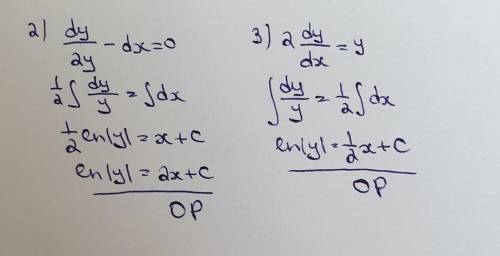 2) dy/2y - dx = 0
1/2 ∫ dy/y = ∫ dx
1/2 ln|y| = x + C
ln|y| = 2x + C
OP
3) 2 dy/dx = y
∫ dy/y = 1/2 ∫ dx
ln|y| = 1/2 x + C
OP